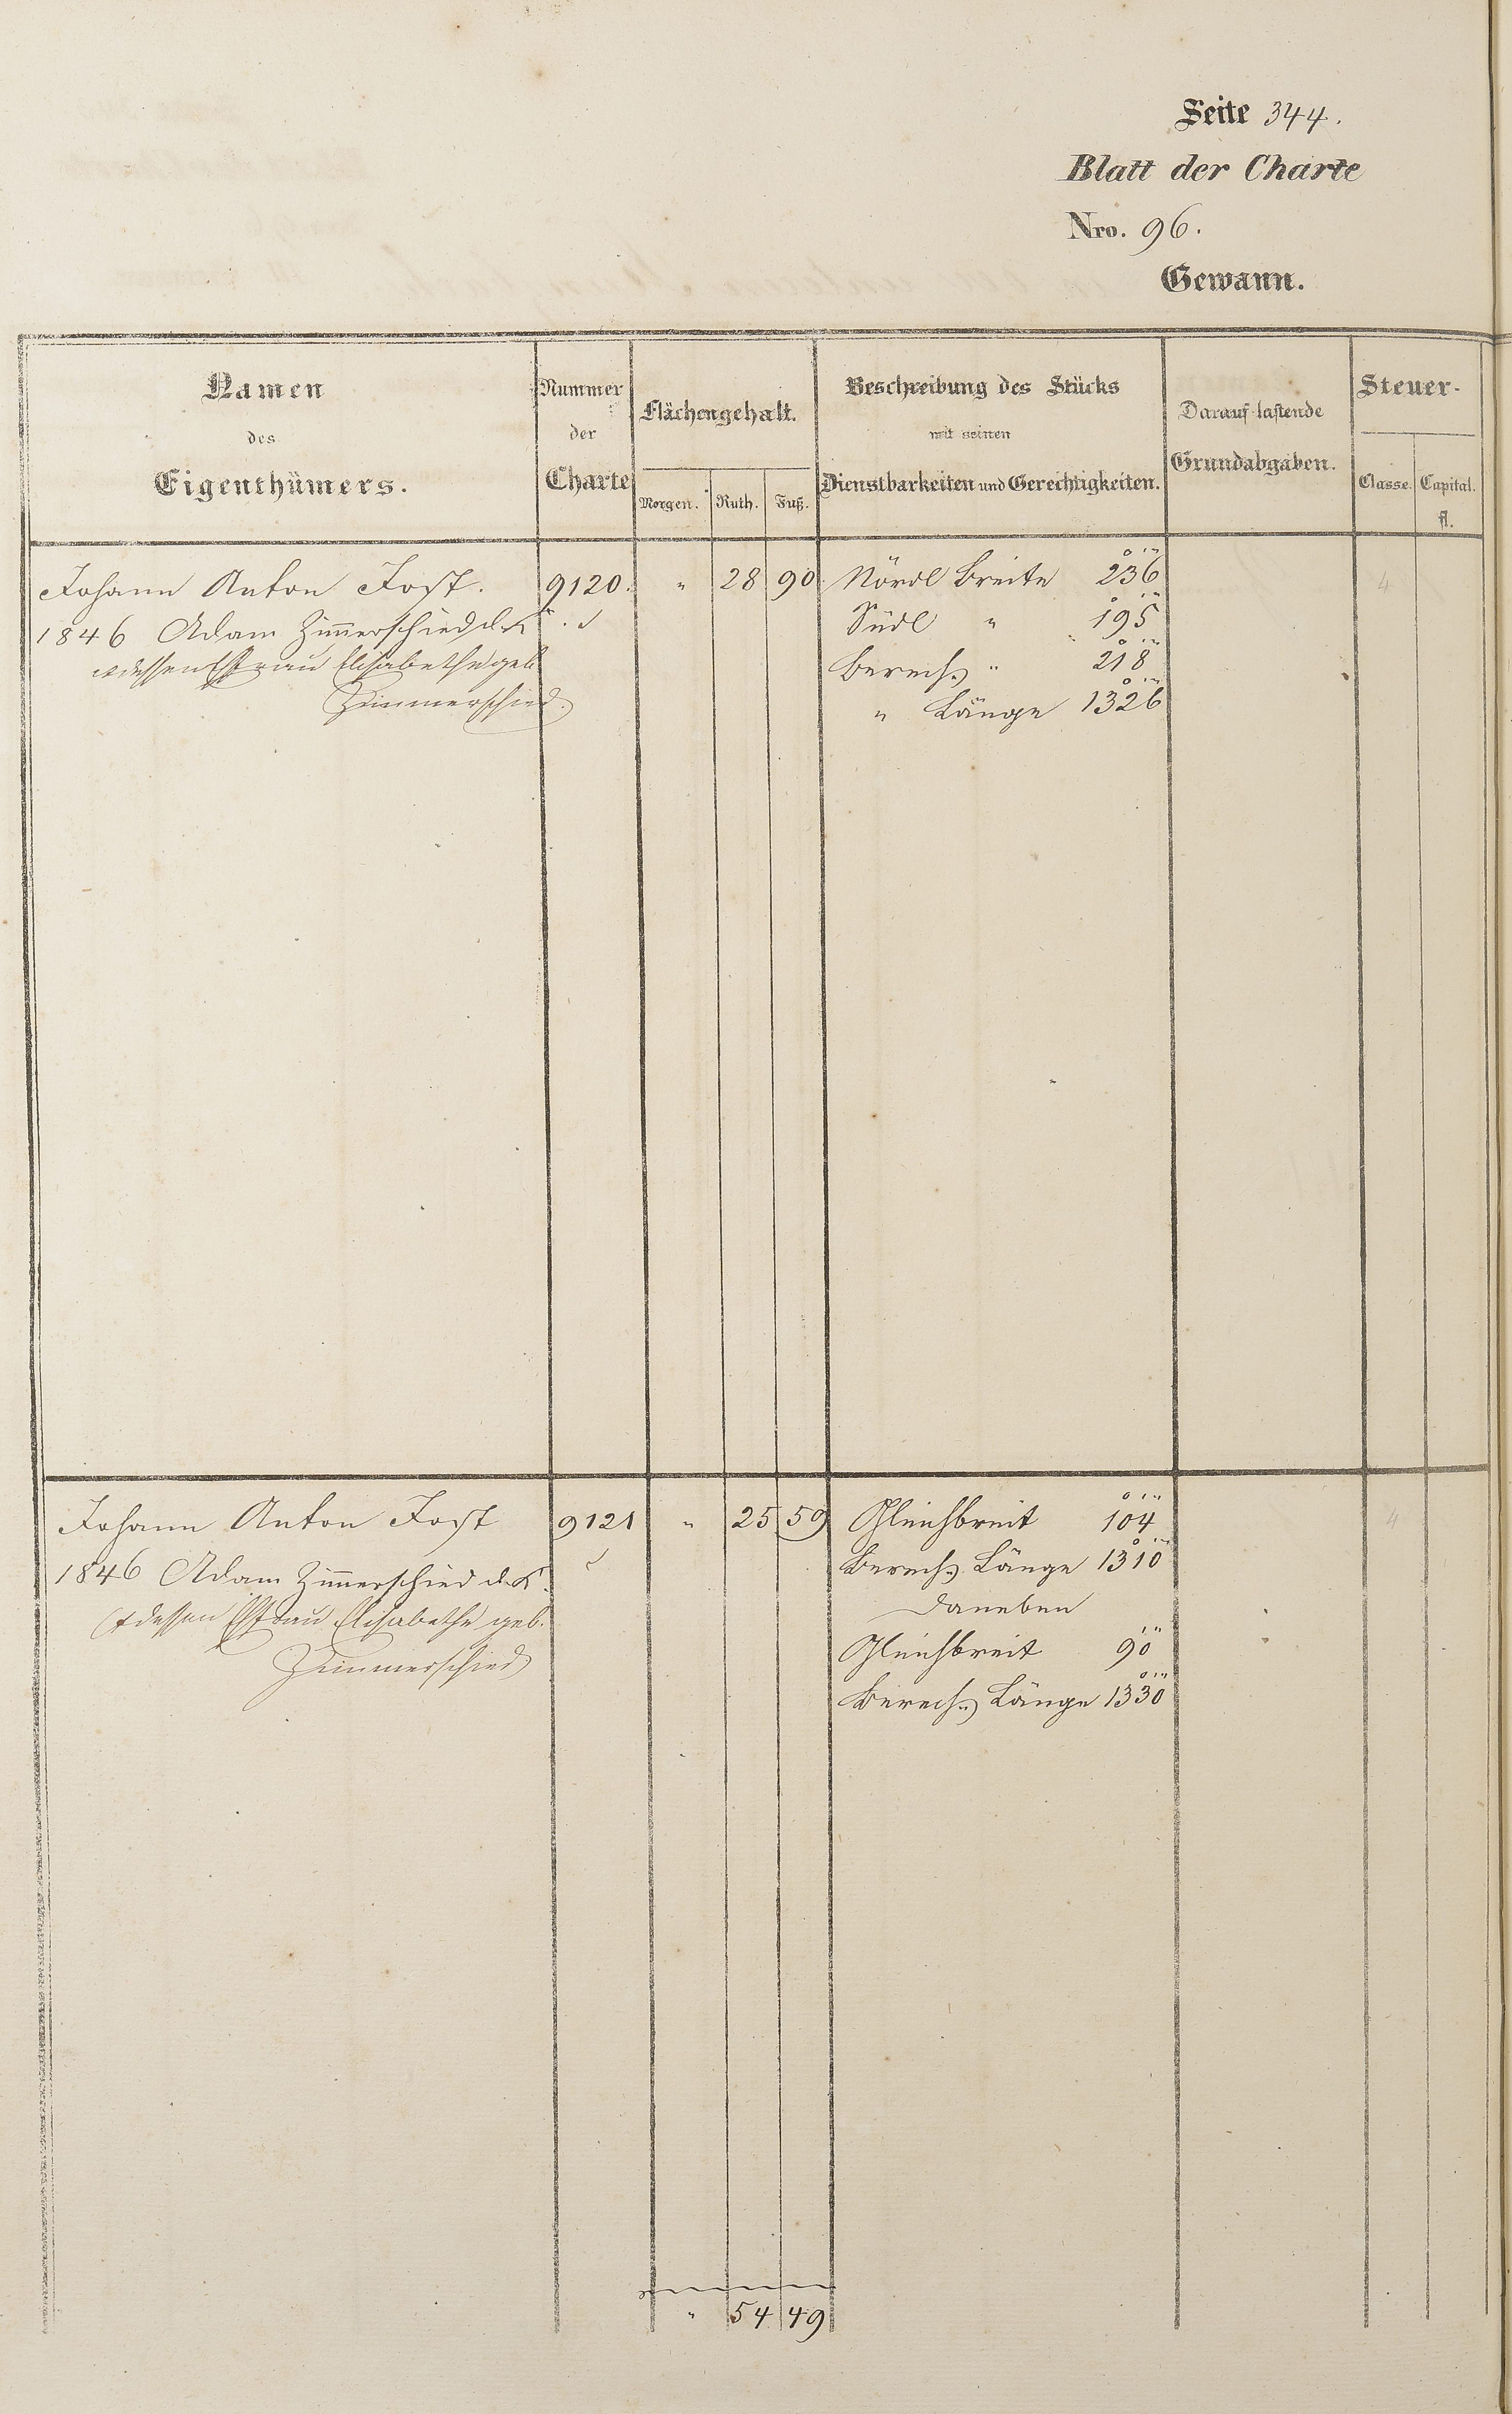 Seite 344.
Blatt der Charte
Nro. 96.
Gewann.
Namen des Eigenthümers.
Nummer der Charte
Flächengehalt.
Morgen. Ruth. Fuß.
Beschreibung des Stücks mit seinen Dienstbarkeiten und Gerechtigkeiten.
Darauf lastende Grundabgaben.
Steuer-
Classe. Capital. fl.
Johann Anton Jost. 9120. " 28 90 Nördl Breite 236 4
1846 Adam Zimerschied d. Südl " 195
dessen Ehfrau Elisabethe geb Berech. " 218
Zimmerschied. " Länge 1326
Johann Anton Jost 9121 " 25 59 Gleichbreit 104 4
1846 Adam Zimerschied d. Berech. Länge 1310
dessen Ehfrau Elisabethe geb. daneben
Zimmerschied Gleichbreit 90
Berech. Länge 1330
" 54 49